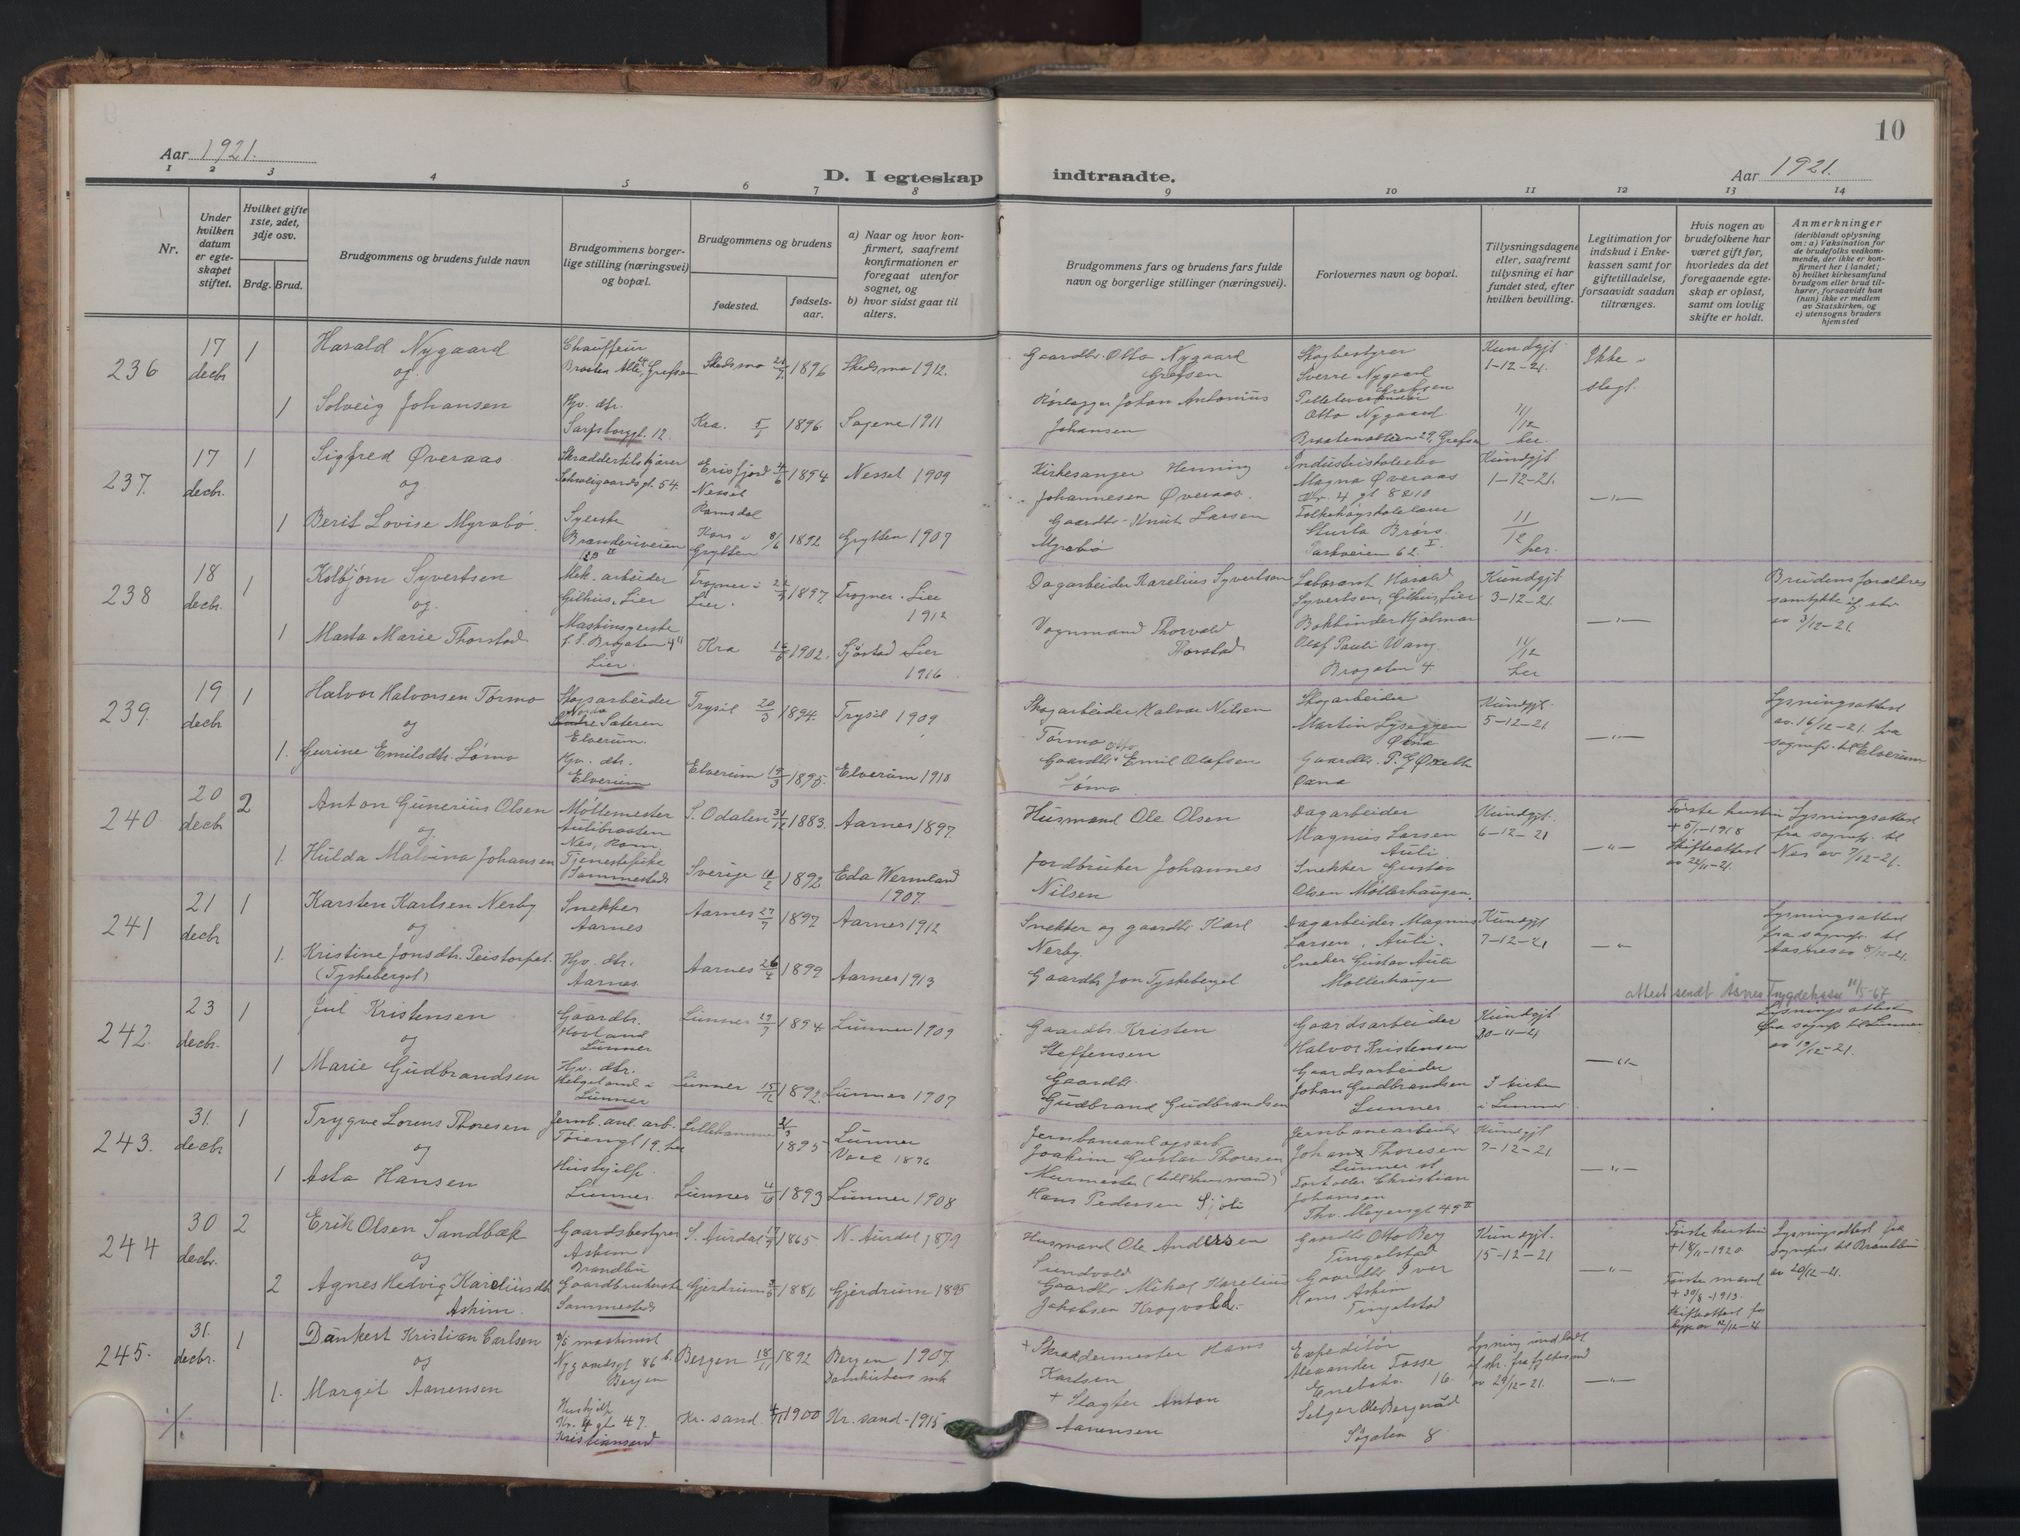 Aar 1921.
D. I egteskap indtraadte.
Aar 1921.
10
1 2 3 4 5 6 7 8 9 10 11 12 13 14
Nr.
Under hvilken datum er egteskapet stiftet.
Hvilket gifte 1ste, 2det, 3dje osv.
Brdg. Brud.
Brudgommens og brudens fulde navn
Brudgommens borgerlige stilling (næringsvei) og bopæl.
Brudgommens og brudens
fødested.
fødselsaar.
a) Naar og hvor konfirmert, saafremt konfirmationen er foregaat utenfor sognet, og
b) hvor sidst gaat til alters.
Brudgommens fars og brudens fars fulde navn og borgerlige stillinger (næringsvei).
Forlovernes navn og bopæl.
Tillysningsdagene eller, saafremt tillysning ei har fundet sted, efter hvilken bevilling.
Legitimation for indskud i Enkekassen samt for giftetilladelse, forsaavidt saadan tiltrænges.
Hvis nogen av brudefolkene har været gift før, hvorledes da det foregaaende egteskap er opløst, samt om lovlig skifte er holdt.
Anmerkninger
(deriblandt oplysning om: a) Vaksination for de brudefolks vedkommende, der ikke er konfirmert her i landet; b) hvilket kirkesamfund brudgom eller brud tilhører, forsaavidt han (hun) ikke er medlem av Statskirken, og c) utensogns bruders hjemsted
236 17 decbr 1 Harald Nygaard Chauffeur Skedsmo 1896 Skedsmo 1912. Gaardbr. Otto Nygaard Grefsen Skogbestyrer Sverre Nygaard Grefsen Kundgjt. 1-12-21. Ikke slegt.
og
1 Solveig Johansen Hjv. dtr. Sarpsborggt. 12. Kra. 1896. Sagene 1911 Rørlægger Johan Antonius Johansen Otto Nygaard 11/12 her.
237. 17 decbr. 1 Sigfred Øveraas Skræddertilskjærer Schweigaardsgt. 54. Erisfjord Nesset 4/6 1894 Nesset 1909 Kirkesanger Henning Johannesen Øveraas. Magna Øveraas Kundgjt. 1-12-21. —"—
og
1 Berit Lovise Myrabø. Syerske Romsdal Kors i Grytten 8/6 1892 Grytten 1907 Gaardbr. Knut Larsen Myrabø Folkehøgskolelærer Sturla Brørs Parkveien 62 I. 11/12 her.
238 18 decbr. 1 Kolbjørn Syvertsen Mek. arbeider Gilhus, Lier Frogner i Lier. 1897. Frogner. Lier 1912 Dagarbeider Karelius Syvertsen Laborant Harald Syvertsen, Gilhus, Lier Kundgjt. 3-12-21. —"— Brudens forældres samtykke av 3/12-21.
og.
1 Marta Marie Thorstad Lier. Kra 1902. Sjåstad Lier 1916 Vognmand Thorvald Thorstad Bokbinder Hjalmar Olaf Pauli Wang. Brogaten 4. 11/12 her
239. 19 decbr 1 Halvor Halvorsen Tørmo Skogsarbeider Elverum. Trysil 20/3 1894. Trysil 1909 Skogarbeider Halvor Nilsen Tørmo Skogarbeider Martin Lyseggen Kundgjt. 5-12-21 —"— Lysningsattest av 16/12-21. fra sognepr. til Elverum
og
1. Gurine Emilsdtr. Lømo Hjv. dtr. Elverum Elverum 1895. Elverum 1910 Gaardbr. Otto Emil Olafsen Lømo. Gaardbr. P. G. Oxna
240. 20 decbr 2 Anton Gunerius Olsen Møllemester Aulibraaten Nes, Rom. S. Odalen 31/12 1883. Aarnes 1897. Husmand Ole Olsen Dagarbeider Magnus Larsen Auli Kundgjt. 6-12-21 —"— Første hustru + 5/1-1918 Skifteattest av 22/11-21. Lysningsattest fra sognepr. til Nes av 7/12-21.
og
1. Hulda Malvina Johansen Tjenestepike Sammesteds Sverige 1892 Eda Wermland 1907. Jordbruker Johannes Nilsen Snekker Gustav Olsen Møllerhaugen.
241 21 decbr 1 Karsten Karlsen Nerby Snekker Aarnes Aarnes 27/7 1897 Aarnes 1912 Snekker og gaardbr Karl Nerby. Dagarbeider Magnus Larsen, Auli. Kundgjt 7-12-21 —"— Lysningsattest fra sognepr. til Aasnes av 8/12-21.
og
1. Kristine Jonsdtr. Peistorpet (Tyskeberget) Hjv. dtr. Aarnes Aarnes 26/4 1899 Aarnes 1913 Gaardbr Jon Tyskeberget Snekker Gustav Auli Møllerhaugen
attest sendt Åsnes Trygdekasse 11/5-67
242. 23 decbr. 1 Jul Kristensen Gaardbr. Hovland Lunner Lunner 29/7 1894 Lunner 1909 Gaardbr. Kristen Steffensen Gaardsarbeider Halvor Kristensen Kundgjt 30-11-21 —"— Lysningsattest fra sognepr til Lunner av 19/12-21.
og
1 Marie Gudbrandsen Hjv. dtr. Helgeland i Lunner Lunner 15/12 1892. Lunner 1907 Gaardbr. Gudbrand Gudbrandsen Gaardsarbeider Johan Gudbrandsen Lunner i Lunner
243. 31. decbr 1 Trygve Lorens Thoresen Jernb. anl. arb. Tøiengt 19. her Lillehammer 31/3 1895 Lunner Vaac 1896 Jernbaneanlagsarb. Joakim Gustav Thoresen Jernbanearbeider Johan Thoresen Lunner st Kundgjt 7-12-21 —"—
og
1 Asta Hansen Hushjelp. Lunner. Lunner 1893 Lunner 1908 Murmester (tidl. husmand) Hans Pedersen Sjøli Christian Johansen Thv. Meyersgt 49 II
244 30 decbr. 2 Erik Olsen Sandbæk Gaardsbestyrer Askim Brandbu S. Aurdal 17/9 1865 N. Aurdal 1879 Husmand Ole Andersen Sundvold Gaardbr Otto Berg Tingelstad Kundgjt. 15-12-21 —"— Første hustru + 18/11-1920 Lysningsattest fra Sognepr til Brandbu av 20/12-21.
og
2 Agnes Hedvig Kareliusdtr. Askim. Gaardbrukerske Sammesteds Gjerdrum 1881 Gjerdrum 1895 Gaardbr Nikol. Karelius Jakobsen Krogvold. Gaardbr Iver Hans Askim Tingelstad Første mand + 30/8-1913. Skifteattest fra
245. 31. decbr. 1 Dankert Kristian Carlsen maskinist Nygaardsgt 86 b. Bergen Bergen 18/11 1892 Bergen 1907. Domkirkens mk + Skræddermester Hans Karlsen Expeditør Alexander Fosse Enebakv. 16. Lysning av 29/12-21. —"—
og
1. Margit Aanensen Hushjelp Kr. 4 gt 47. Kristiansand Kr. sand. 1900 Kr. sand-1915 + Slagter Anton Aanensen Selger Ole Bergerud Søgaten 8